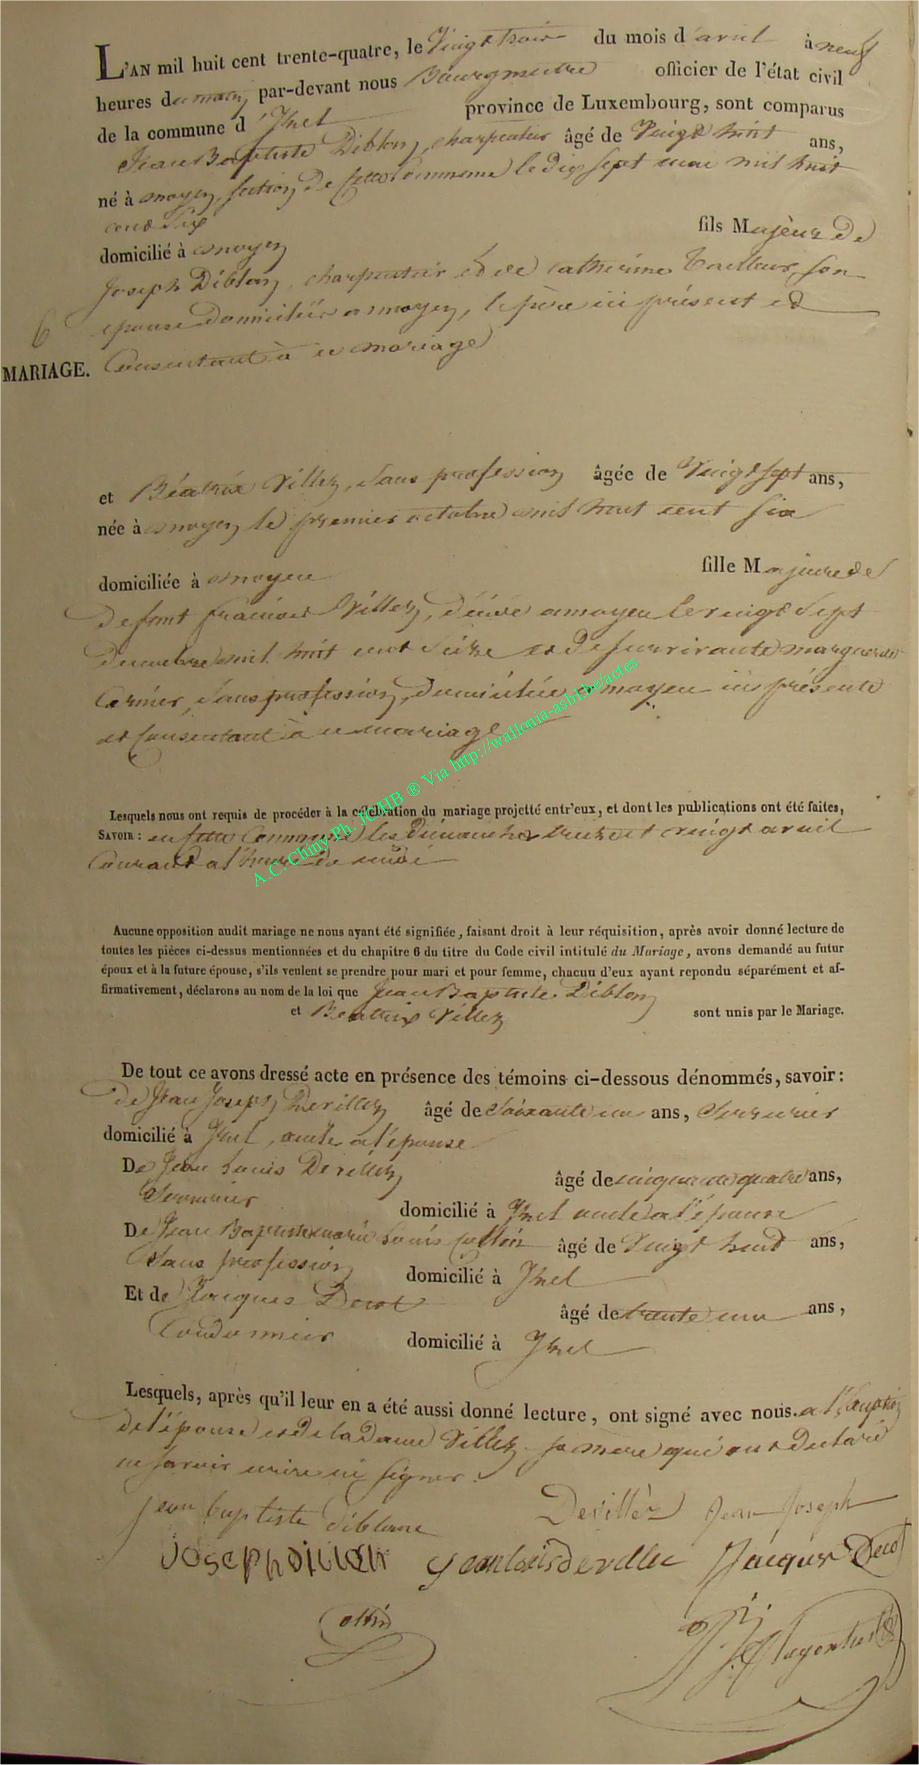 L'AN mil huit cent trente-quatre, le Vingt trois du mois d'avril à neuf
heures du matin par-devant nous Bourgmestre officier de l'état civil
de la commune d'Izel province de Luxembourg, sont comparus
Jean Baptiste Diblon, charpentier âgé de Vingt huit ans,
né à moyen, section de cette commune le dix sept mai mil huit
cent six
domicilié à moyen fils Majeur de
Joseph Diblon, charpentier et de catherine Tailleur, son
epouse domiciliés a moyen, le père ici présent et
Consentant à ce mariage
6
MARIAGE.
et Béatrix Villez, sans profession âgée de Vingt sept ans,
née à moyen le premier octobre mil huit cent six
domiciliée à moyen fille Majeure de
defunt François Villez, décédé a moyen le vingt sept
decembre mil huit cent seize et de survivante marguerite
sans profession, domiciliée a moyen ici présente
et Consentant à ce mariage
Lesquels nous ont requis de procéder à la célébration du mariage projetté entr'eux, et dont les publications ont été faites,
SAVOIR : en cette Commune les Dimanches treize et vingt avril
Courant a l'heure de midi
Aucune opposition audit mariage ne nous ayant été signifiée, faisant droit à leur réquisition, après avoir donné lecture de
toutes les pièces ci-dessus mentionnées et du chapitre 6 du titre du Code civil intitulé du Mariage, avons demandé au futur
époux et à la future épouse, s'ils veulent se prendre pour mari et pour femme, chacun d'eux ayant repondu séparément et af-
firmativement, déclarons au nom de la loi que Jean Baptiste Diblon
et Beatrix Villez sont unis par le Mariage.
De tout ce avons dressé acte en présence des témoins ci-dessous dénommés, savoir :
de Jean Joseph Devillez âgé de Soixante un ans, Serrurier
domicilié à Izel, oncle a l'épouse
De Jean Louis Devillez âgé de cinquante quatre ans,
Serrurier domicilié à Izel oncle a l'épouse
De Jean Baptiste marie Louis Collin âgé de Vingt huit ans,
Sans profession domicilié à Izel
Et de Jacques Decot âgé de trente un ans,
Cordonnier domicilié à Izel
Lesquels, après qu'il leur en a été aussi donné lecture, ont signé avec nous. a l'Exception
de l'épouse et de la Dame Villez sa mere qui ont declaré
ne savoir ecrire ni signer.
jean baptiste diblon Devillez Jean Joseph
Joseph diblon Jean louis devillez Jacques Decot
A.C. Chiny-Ph. JCHB ® Via http://wallonia-asbl.be/actes